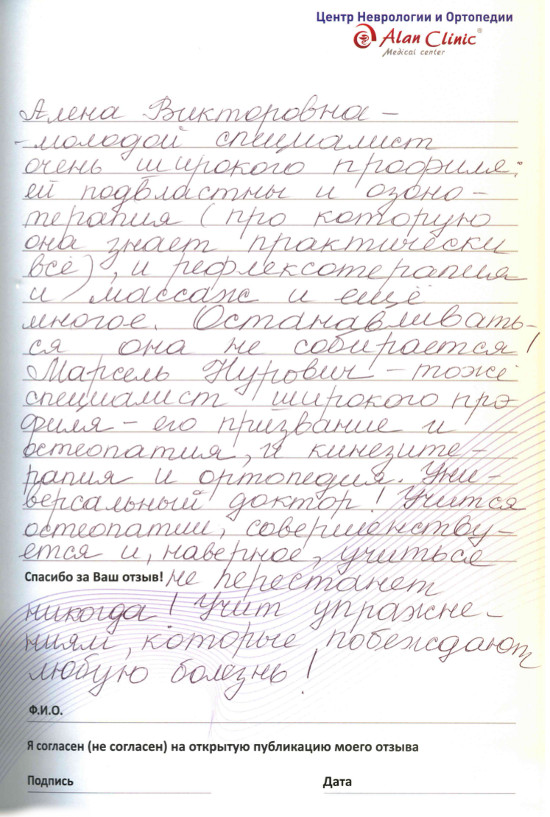 Центр Неврологии и Ортопедии
Alan Clinic®
Medical center
Алена Викторовна –
- молодой специалист
очень широкого профиля:
ей подвластны и озоно-
терапия (про которую
она знает практически
всё), и рефлексотерапия
и массаж и ещё
многое. Останавливать-
ся она не собирается!
Марсель Нурович – тоже
специалист широкого про-
филя – его призвание и
остеопатия, и кинезите-
рапия и ортопедия. Уни-
версальный доктор! Учится
остеопатии, совершенству-
ется и, наверное, учиться
Спасибо за Ваш отзыв! не перестанет
никогда! Учит упражне-
ниям, которые побеждают
любую болезнь!
Ф.И.О.
Я согласен (не согласен) на открытую публикацию моего отзыва
Подпись Дата